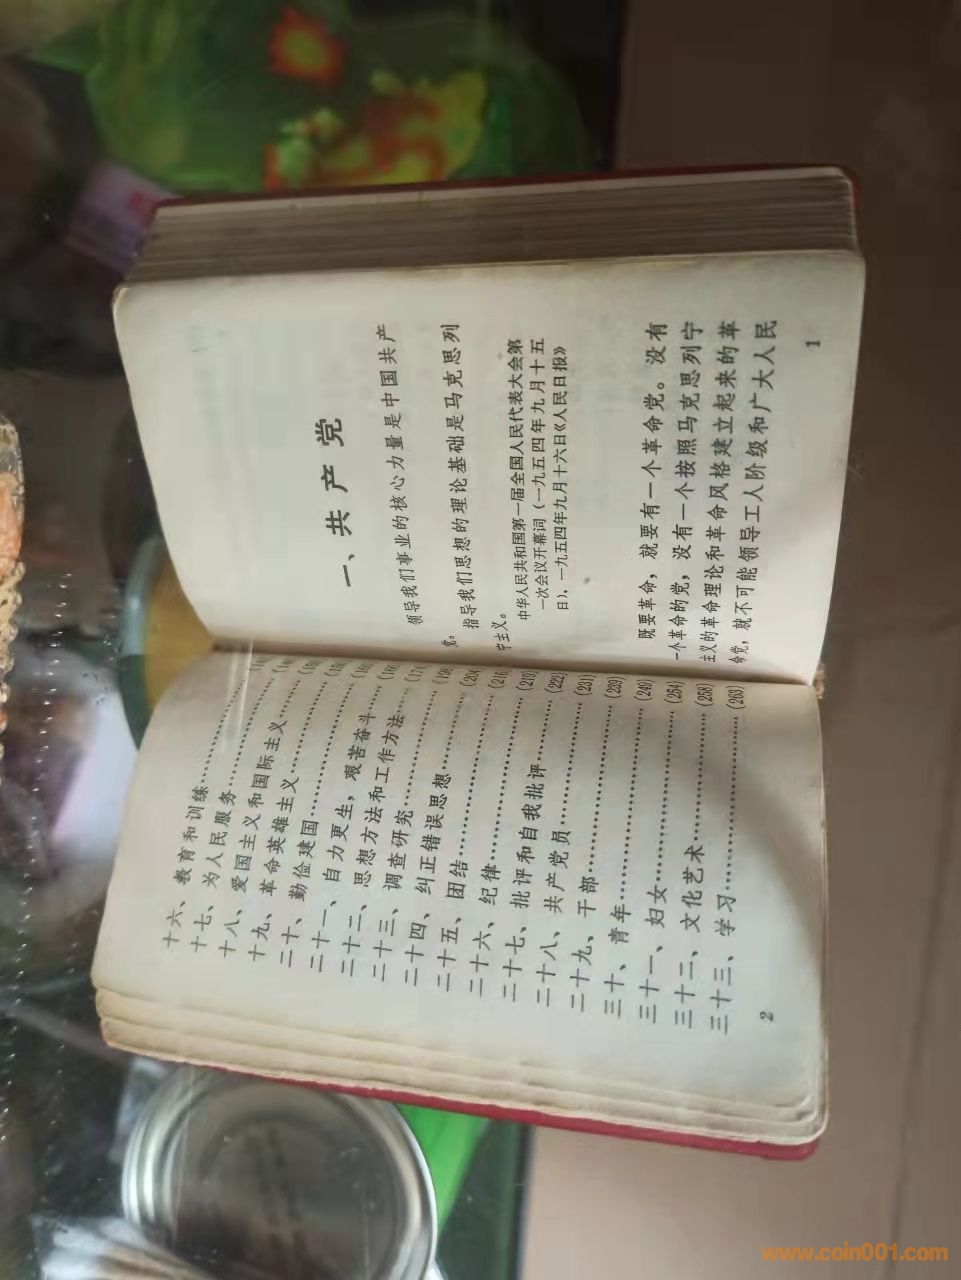 十六、教育和训练
十七、为人民服务
十八、爱国主义和国际主义
十九、革命英雄主义
二十、勤俭建国
二十一、自力更生，艰苦奋斗
二十二、思想方法和工作方法
二十三、调查研究
二十四、纠正错误思想
二十五、团结……(204)
二十六、纪律……(216)
二十七、批评和自我批评……(219)
二十八、共产党员……(222)
二十九、干部……(231)
三十、青年……(239)
三十一、妇女……(249)
三十二、文化艺术……(254)
三十三、学习……(263)
2
一、共产党
领导我们事业的核心力量是中国共产
党。
指导我们思想的理论基础是马克思列
宁主义。
中华人民共和国第一届全国人民代表大会第
一次会议开幕词（一九五四年九月十五
日），一九五四年九月十六日《人民日报》
既要革命，就要有一个革命党。没有
一个革命的党，没有一个按照马克思列宁
主义的革命理论和革命风格建立起来的革
命党，就不可能领导工人阶级和广大人民
1
www.coin001.com